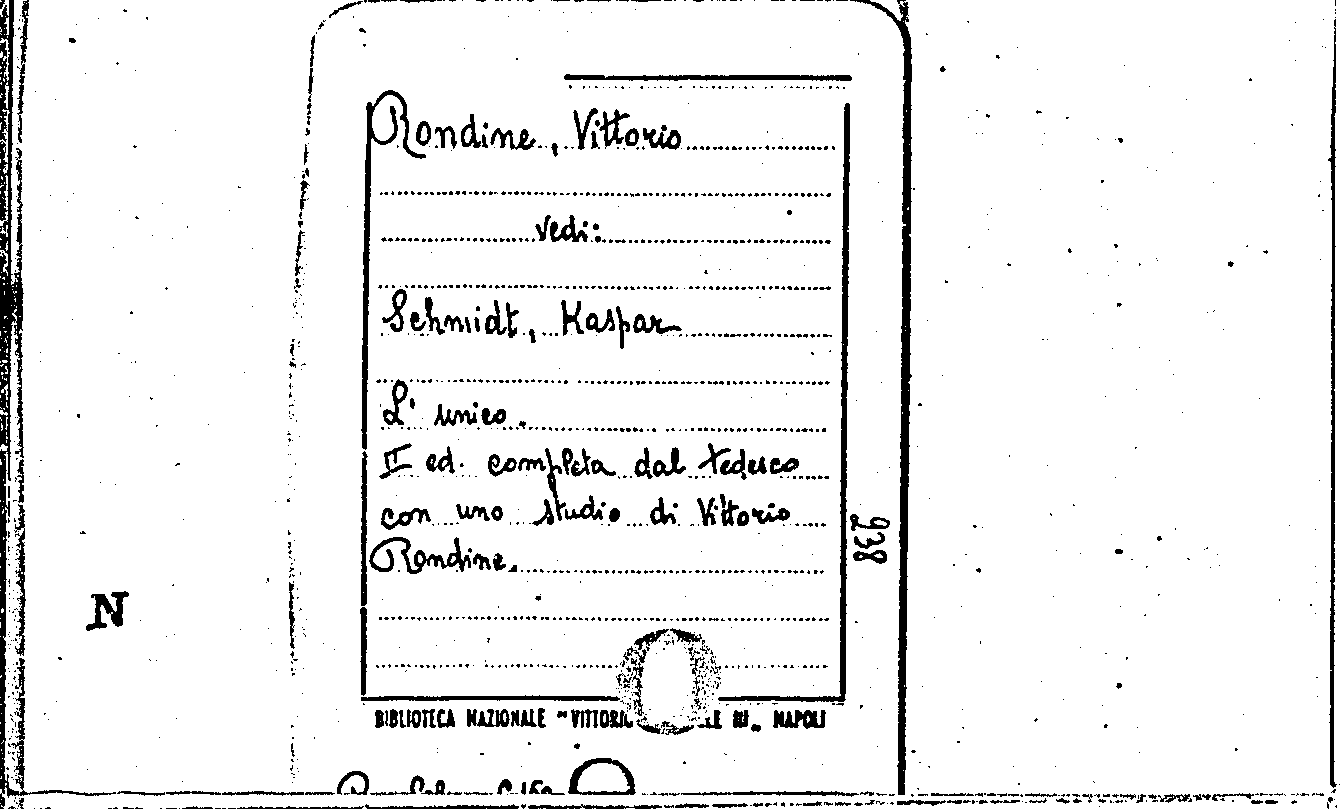 Rondine, Vittorio
vedi:
Schmidt, Kaspar
L' unico.
II ed. completa dal tedesco
con uno studio di Vittorio
Rondine.
938
N
BIBLIOTECA NAZIONALE "VITTORIO III" NAPOLI